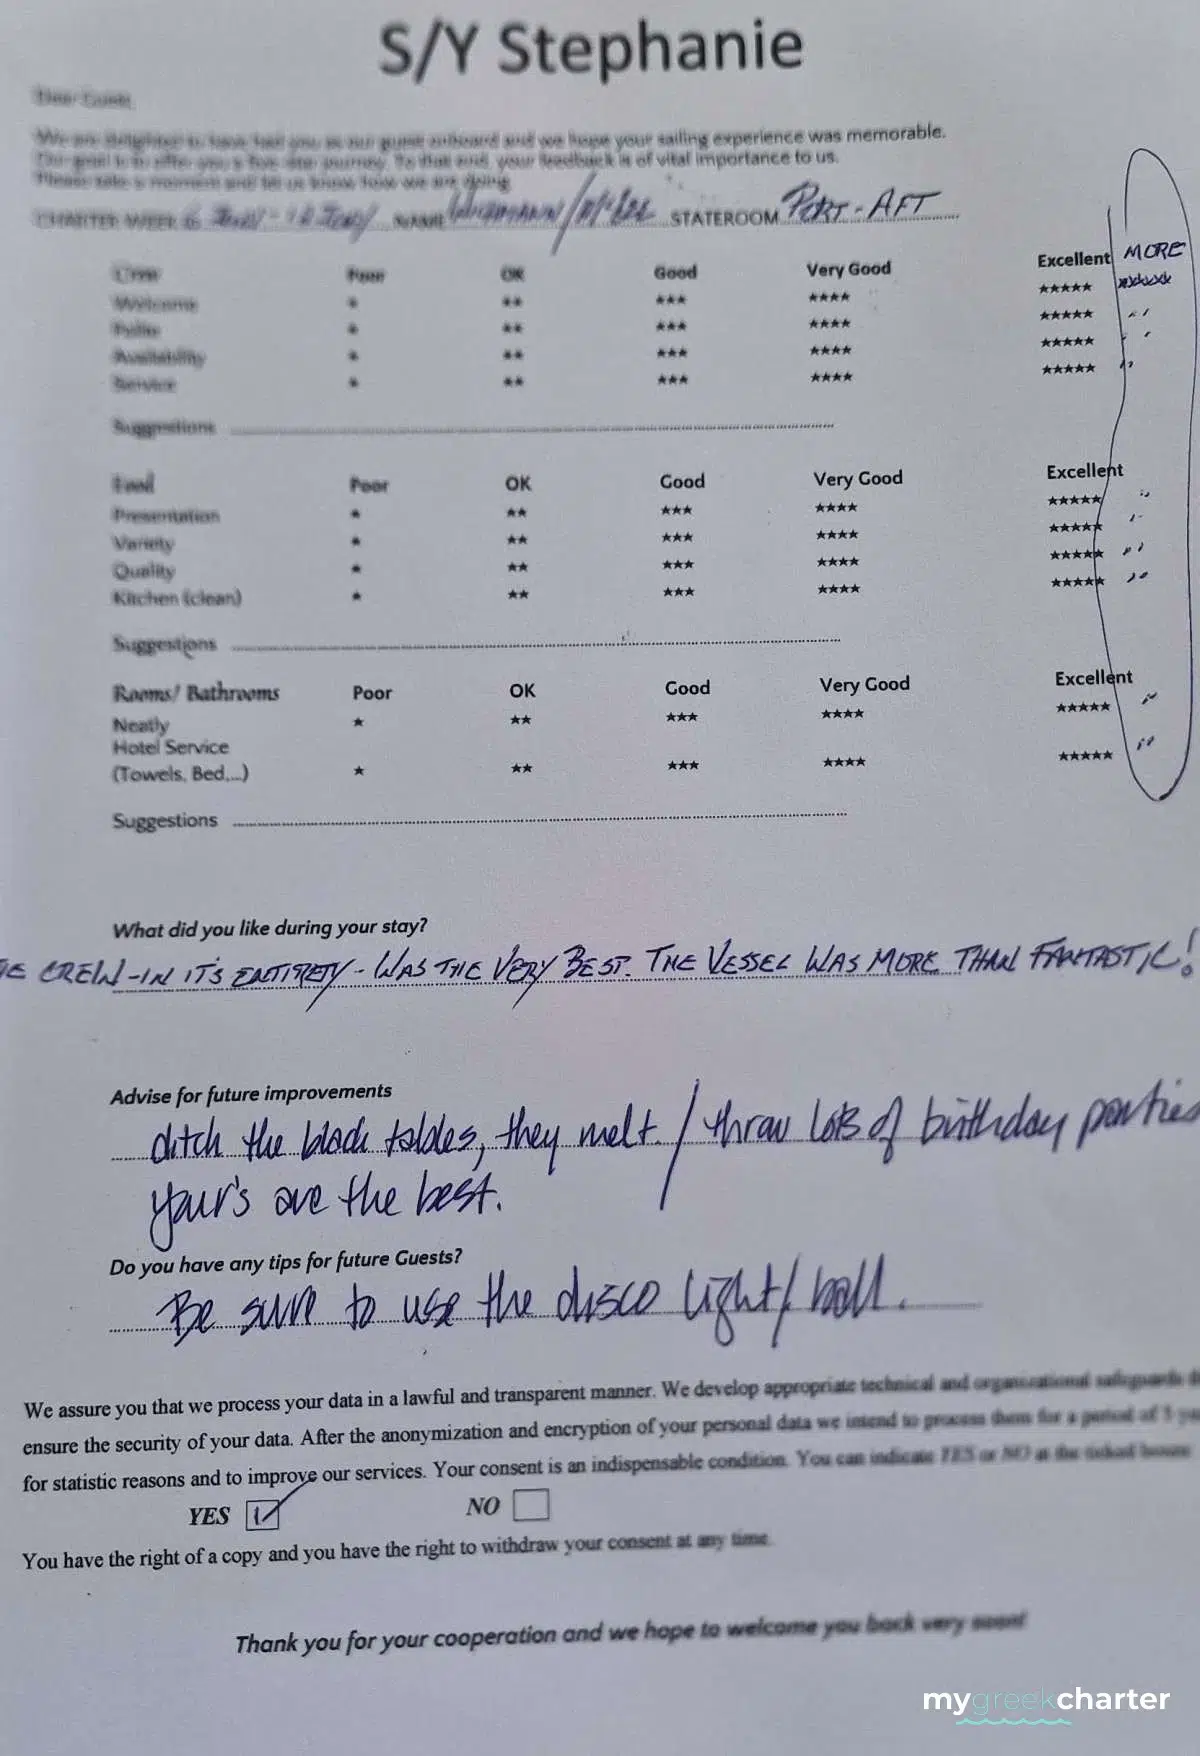 S/Y Stephanie
Dear Guest,
We are delighted to have had you as our guest onboard and we hope your sailing experience was memorable.
Our goal is to offer you a five star journey. To that end, your feedback is of vital importance to us.
Please take a moment and let us know how we are doing
CHARTER WEEK 6 NAME STATEROOM PORT-AFT
Crew Poor OK Good Very Good Excellent MORE
Welcome ★ ★★ ★★★ ★★★★ ★★★★★ xxxxx
Polite ★ ★★ ★★★ ★★★★ ★★★★★ "
Availability ★ ★★ ★★★ ★★★★ ★★★★★ "
Service ★ ★★ ★★★ ★★★★ ★★★★★ "
Suggestions
Food Poor OK Good Very Good Excellent
Presentation ★ ★★ ★★★ ★★★★ ★★★★★ "
Variety ★ ★★ ★★★ ★★★★ ★★★★★ "
Quality ★ ★★ ★★★ ★★★★ ★★★★★ "
Kitchen (clean) ★ ★★ ★★★ ★★★★ ★★★★★ "
Suggestions
Rooms/ Bathrooms Poor OK Good Very Good Excellent
Neatly ★ ★★ ★★★ ★★★★ ★★★★★ "
Hotel Service
(Towels, Bed,...) ★ ★★ ★★★ ★★★★ ★★★★★ "
Suggestions
What did you like during your stay?
CREW-IN IT'S ENTIRETY-WAS THE VERY BEST. THE VESSEL WAS MORE THAN FANTASTIC!
Advise for future improvements
ditch the black tables, they melt. / throw lots of birthday parties
your's are the best.
Do you have any tips for future Guests?
Be sure to use the disco light/ball.
We assure you that we process your data in a lawful and transparent manner. We develop appropriate technical and organizational safeguards
ensure the security of your data. After the anonymization and encryption of your personal data we intend to process them for a period of 5
for statistic reasons and to improve our services. Your consent is an indispensable condition. You can indicate YES or NO at the ticked boxes
YES NO
You have the right of a copy and you have the right to withdraw your consent at any time.
Thank you for your cooperation and we hope to welcome you back very soon!
mygreekcharter